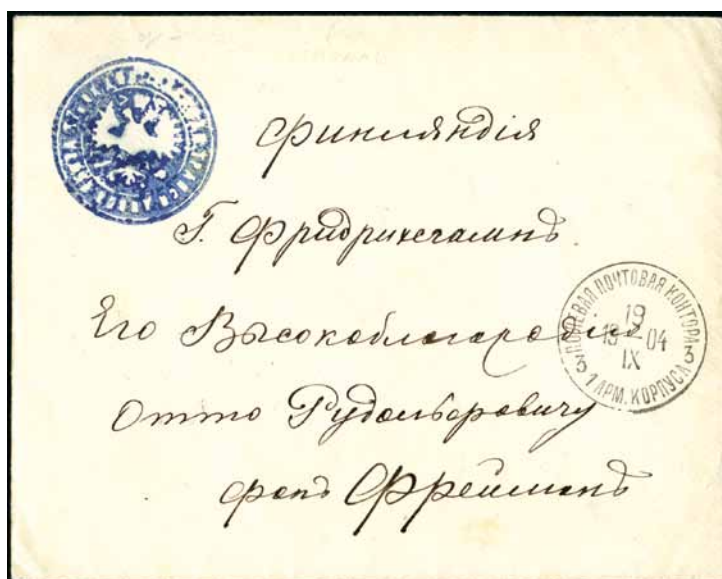 Финляндія
Г. Фридрихсгамнъ
Его Высокоблагородію
Отто Рудольфовичу
фонъ Фрейманъ
ПОЛЕВАЯ ПОЧТОВАЯ КОНТОРА
19
19 – 04
IX
3 3
1 АРМ. КОРПУСА